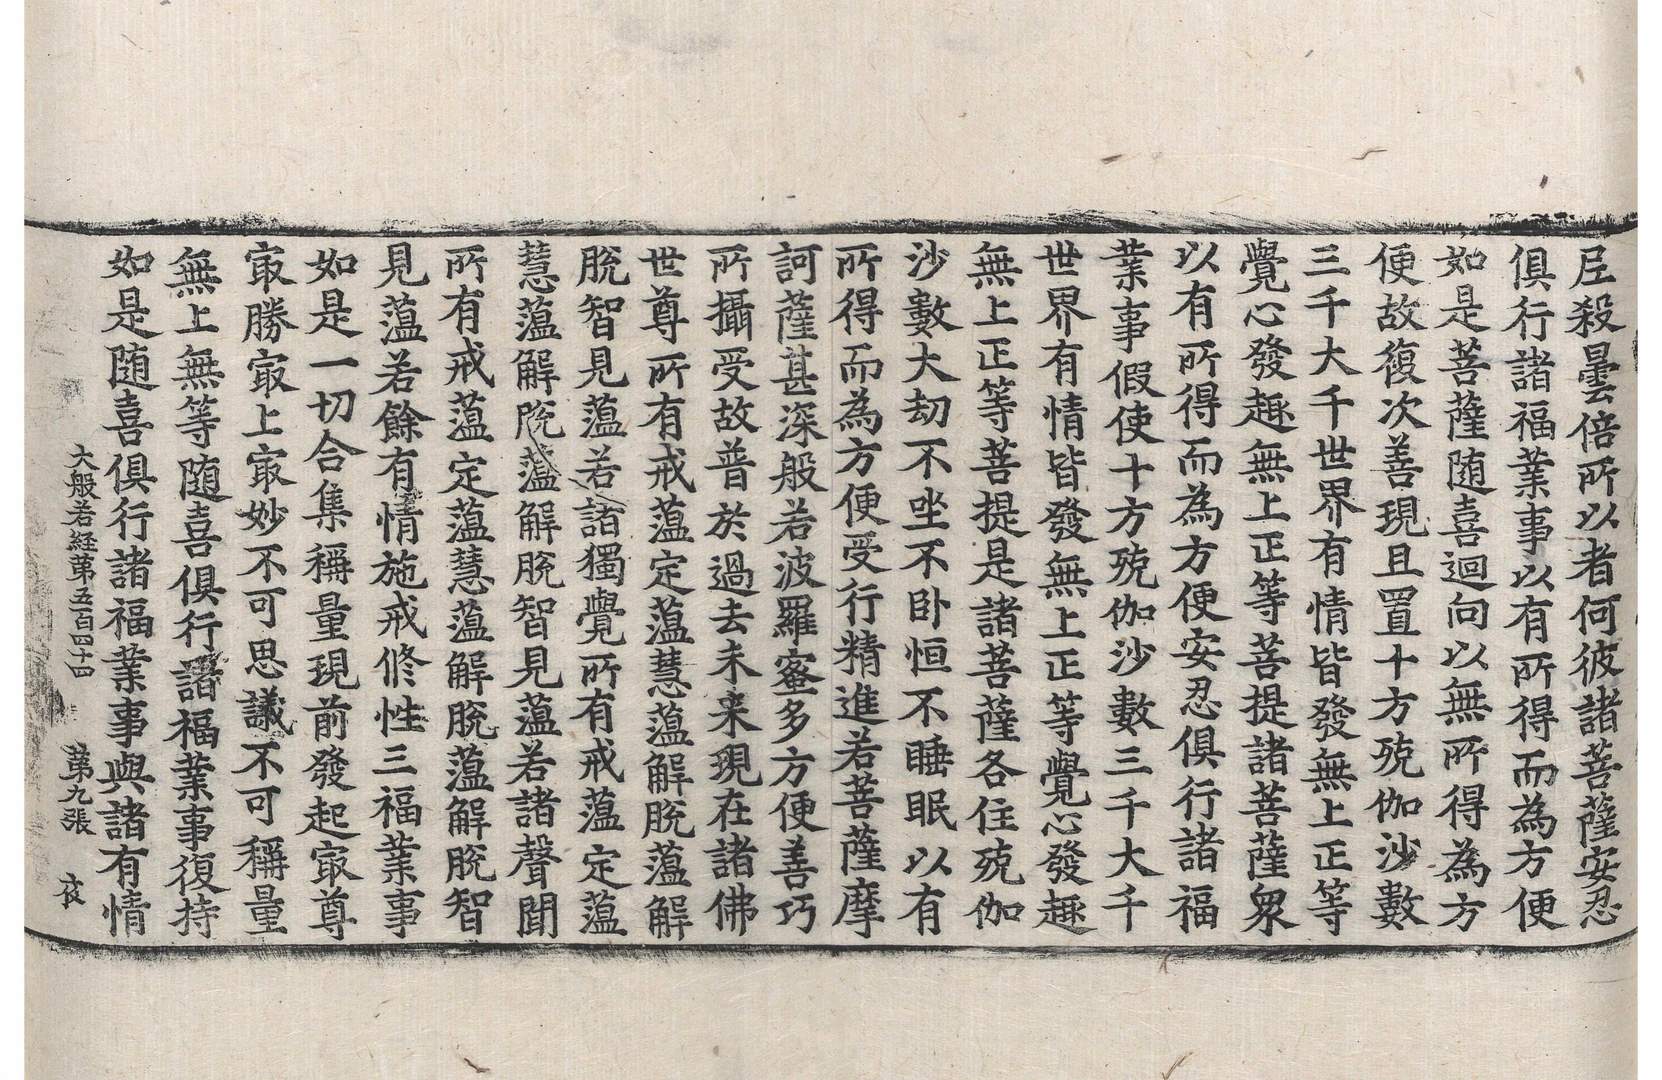 𡰱殺曇倍所以者何彼諸菩薩安忍
俱行諸福業事以有所得而為方便
如是菩薩随喜迴向以無所得為方
便故復次善現且置十方殑伽沙數
三千大千世界有情皆發無上正等
覺心發趣無上正等菩提諸菩薩衆
以有所得而為方便安忍俱行諸福
業事假使十方殑伽沙數三千大千
世界有情皆發無上正等覺心發趣
無上正等菩提是諸菩薩各住殑伽
沙數大劫不坐不卧恒不睡眠以有
所得而為方便受行精進若菩薩摩
訶薩甚深般若波羅蜜多方便善巧
所攝受故普於過去未来現在諸佛
世尊所有戒蕰定蕰慧蕰解脫蕰解
脫智見蕰若諸獨覺所有戒蕰定蕰
慧蕰解脫蕰解脫智見蕰若諸聲聞
所有戒蕰定蕰慧蕰解脫蕰解脫智
見蕰若餘有情施戒修性三福業事
如是一切合集稱量現前發起㝡尊
㝡勝㝡上㝡妙不可思議不可稱量
無上無等随喜俱行諸福業事復持
如是随喜俱行諸福業事與諸有情
大般若経第五百四十四 第九張 夜